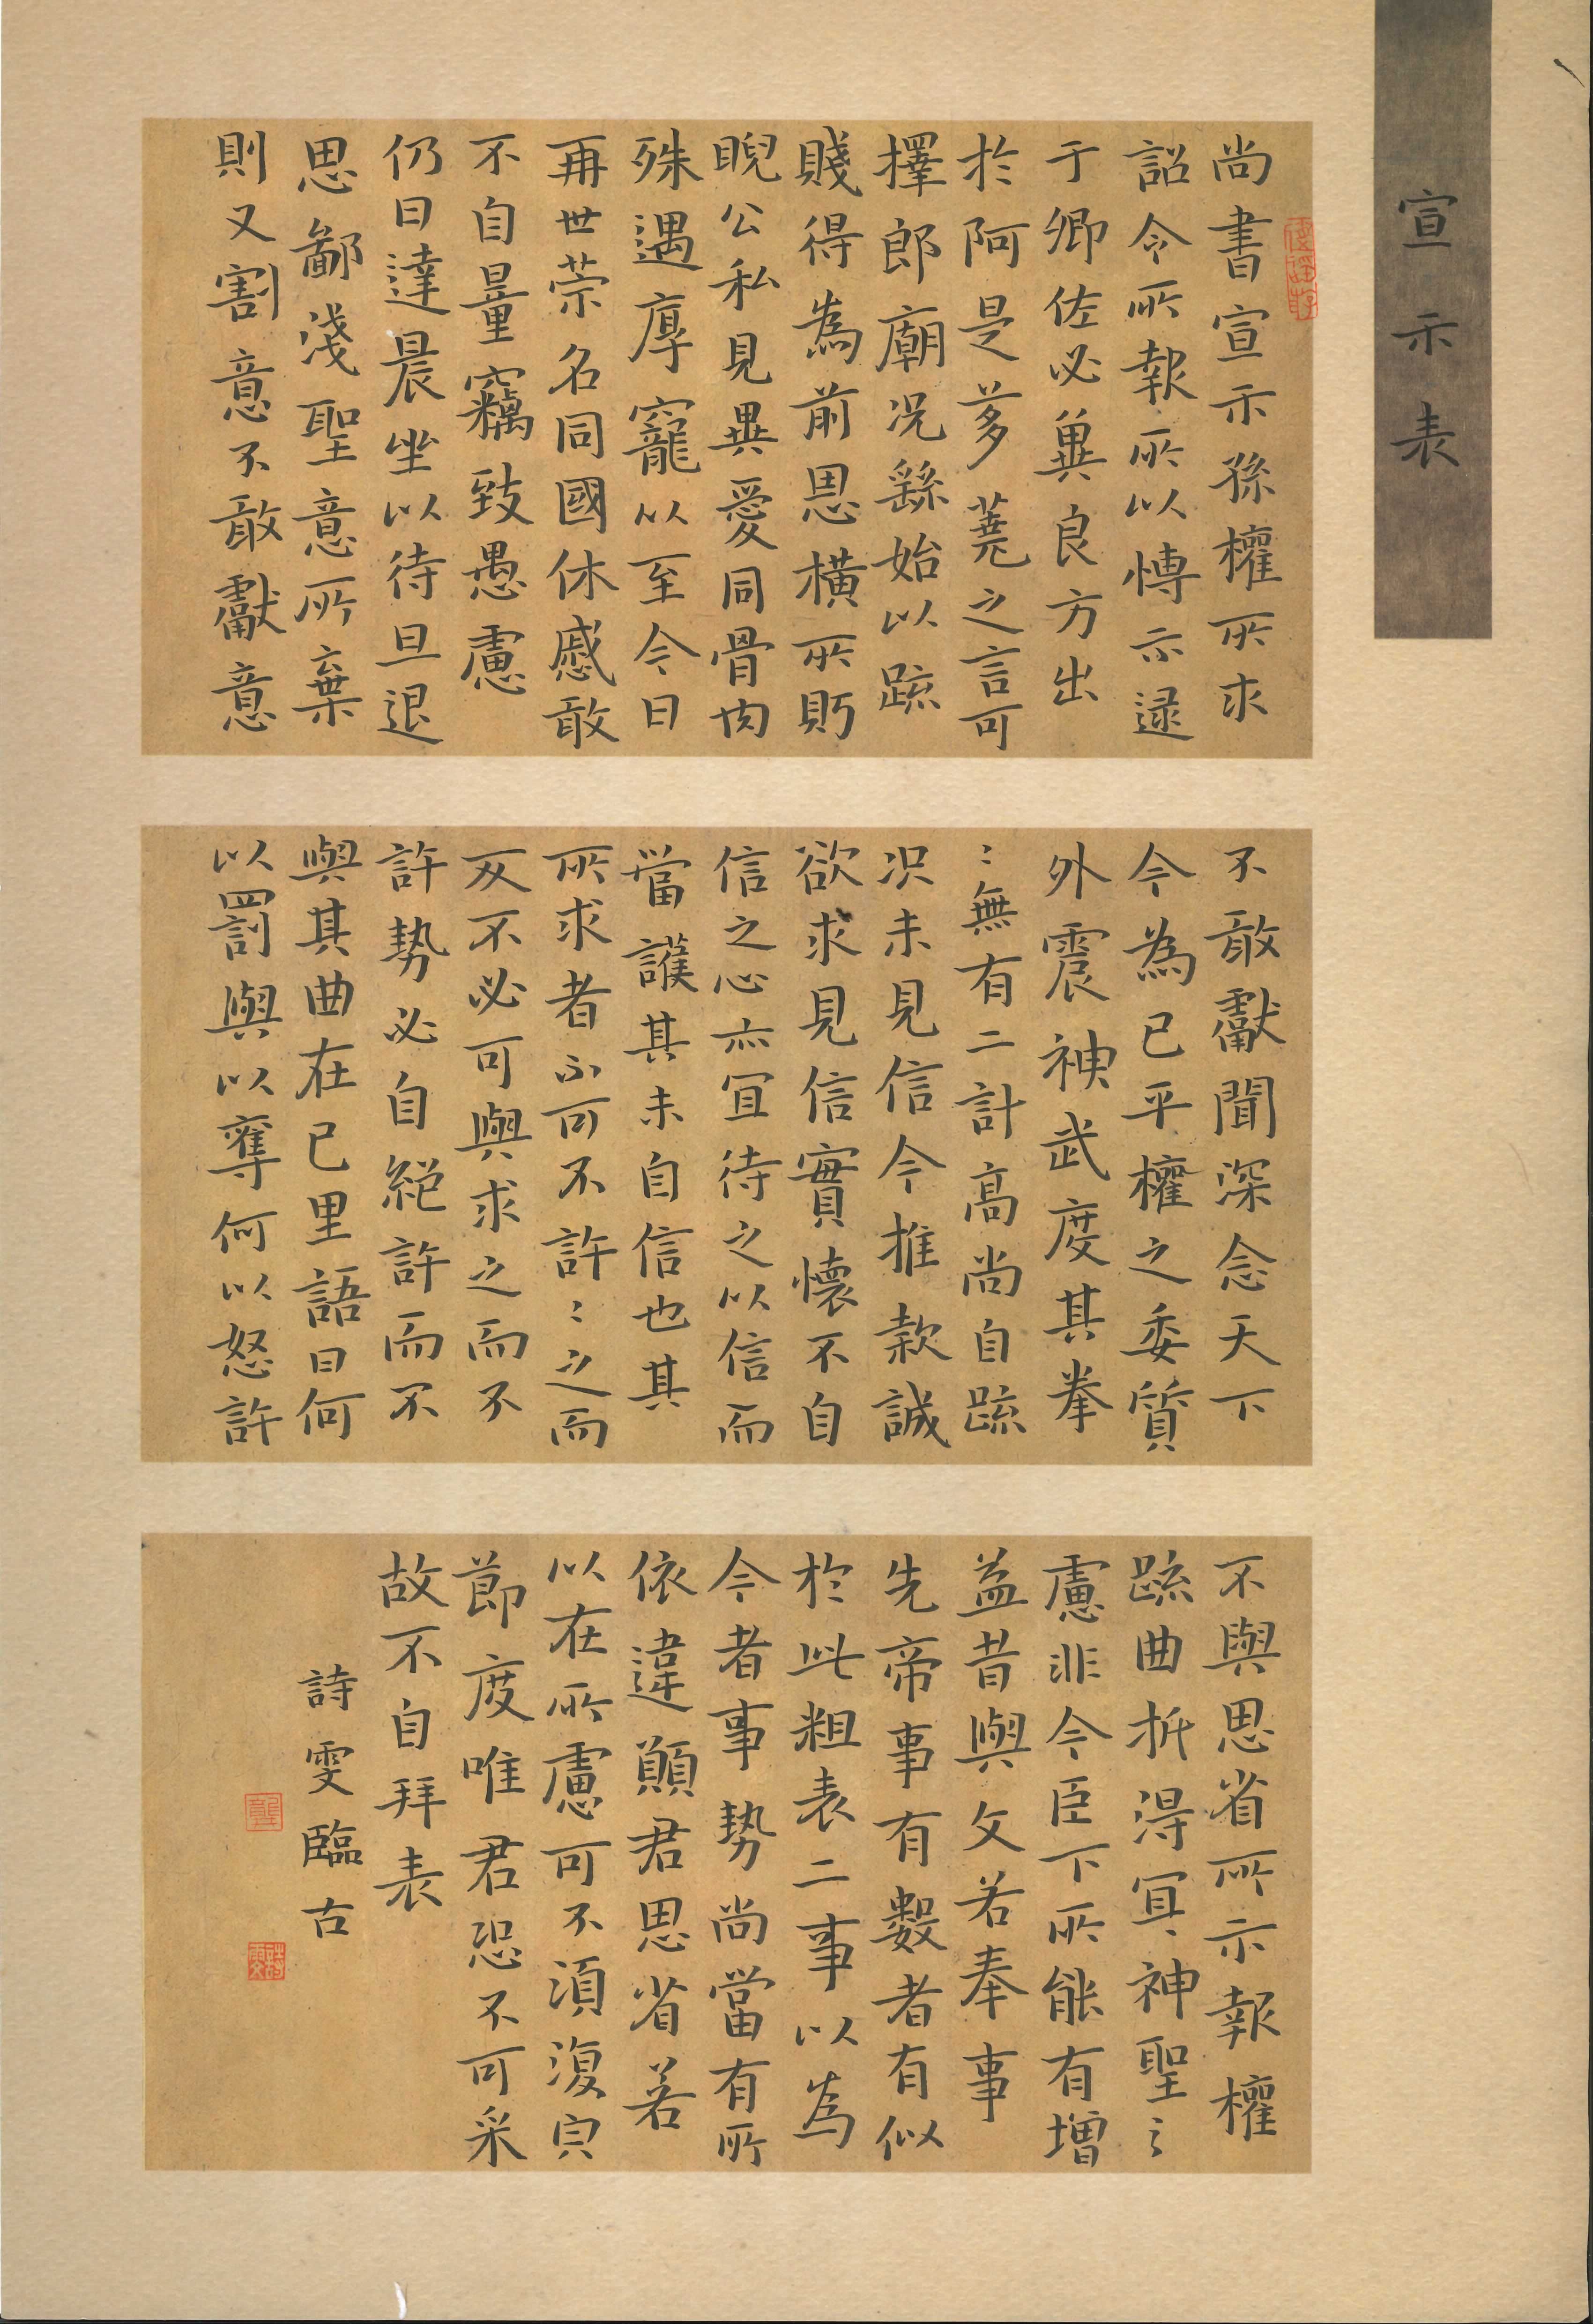 宣示表
尚書宣示孫權所求
詔令所報所以博示逮
于卿佐必冀良方出
於阿是芻蕘之言可
擇郎廟況繇始以疏
賤得為前恩橫所盻
睨公私見異愛同骨肉
殊遇厚寵以至今日
再世榮名同國休慼敢
不自量竊致愚慮
仍日達晨坐以待旦退
思鄙淺聖意所棄
則又割意不敢獻意
不敢獻聞深念天下
今為已平權之委質
外震神武度其拳
〻無有二計高尚自疏
況未見信今推款誠
欲求見信實懷不自
信之心亦宜待之以信而
當護其未自信也其
所求者不可不許〻之而
反不必可與求之而不
許勢必自絕許而不
與其曲在已里語曰何
以罰與以奪何以怒許
不與思省所示報權
疏曲折得宜神聖之
慮非今臣下所能有增
益昔與文若奉事
先帝事有數者有似
於此粗表二事以為
今者事勢尚當有所
依違願君思省若
以在所慮可不須復貌
節度唯君恐不可采
故不自拜表
詩雯臨古
龔
詩雯